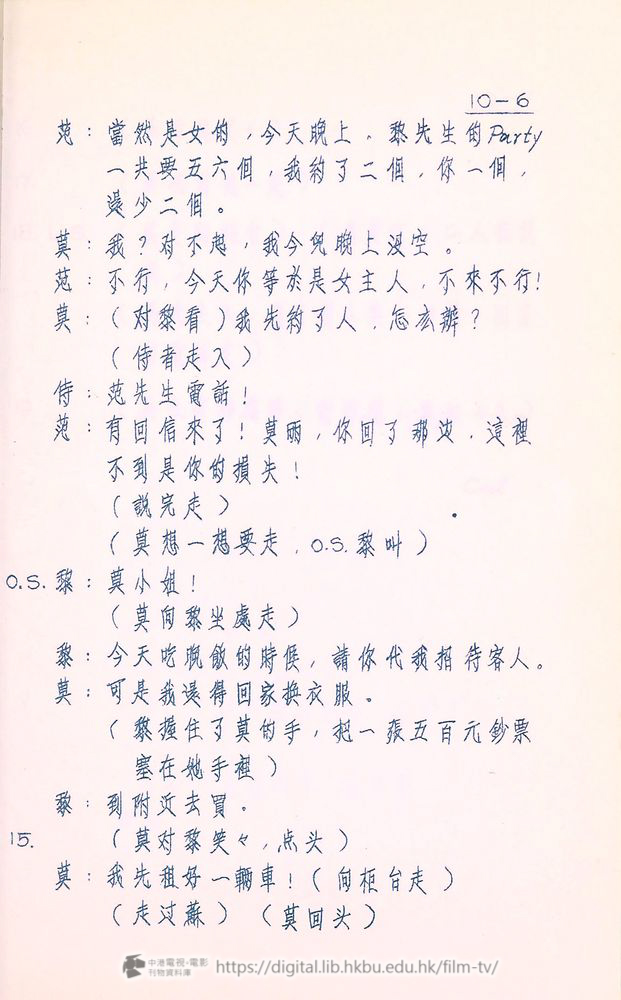 10-6
范：當然是女的，今天晚上，黎先生的Party
一共要五六個，我約了二個，你一個，
還少二個。
莫：我？对不起，我今兒晚上没空。
范：不行，今天你等於是女主人，不來不行！
莫：（对黎看）我先約了人，怎么辦？
（侍者走入）
侍：范先生電話！
范：有回信來了！莫丽，你回了那边，這裡
不到是你的損失！
（說完走）
（莫想一想要走，O.S.黎叫）
O.S.黎：莫小姐！
（莫向黎坐處走）
黎：今天吃晚飯的時候，請你代我招待客人。
莫：可是我還得回家换衣服。
（黎握住了莫的手，把一張五百元鈔票
塞在她手裡）
黎：到附近去買。
15.（莫对黎笑々，点头）
莫：我先租好一輛車！（向柜台走）
（走过蘇）（莫回头）
中港電視·電影
刊物資料庫
https://digital.lib.hkbu.edu.hk/film-tv/